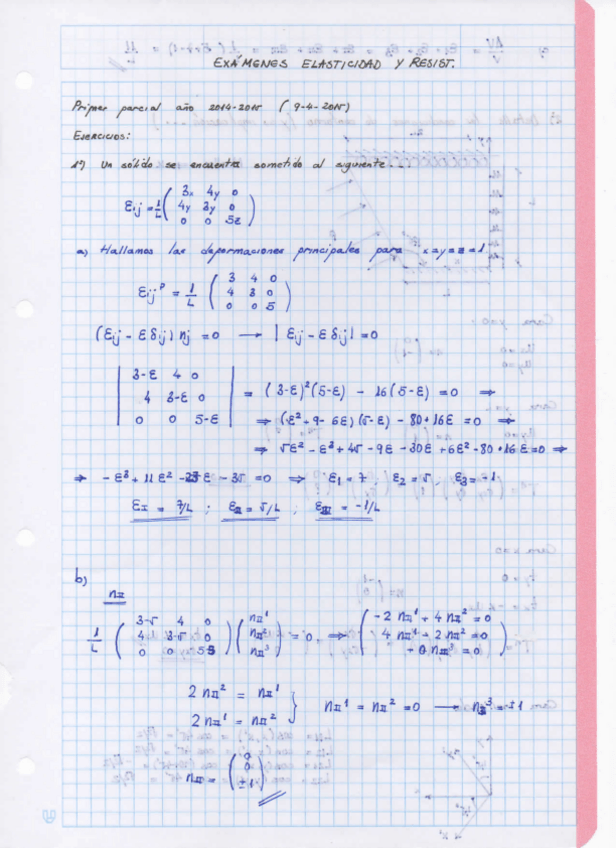 EXÁMENES ELASTICIDAD Y RESIST.
Primer parcial año 2014-2015 (9-4-2015)
EJERCICIOS:
1º) Un sólido se encuentra sometido al siguiente...
εij = 1/L ( 3x 4y 0
4y 3y 0
0 0 5z )
a) Hallamos las deformaciones principales para x=y=z=1
εij^P = 1/L ( 3 4 0
4 3 0
0 0 5 )
(εij - ε δij) nj = 0 → |εij - ε δij| = 0
| 3-ε 4 0
4 3-ε 0
0 0 5-ε | = (3-ε)²(5-ε) - 16(5-ε) = 0 ⇒
⇒ (ε² + 9 - 6ε)(5-ε) - 80 + 16ε = 0 ⇒
⇒ 5ε² - ε³ + 45 - 9ε - 30ε + 6ε² - 80 + 16ε = 0 ⇒
⇒ -ε³ + 11ε² - 23ε - 35 = 0 ⇒ ε1 = 7, ε2 = 5, ε3 = -1
εI = 7/L ; εII = 5/L ; εIII = -1/L
b)
nII
1/L ( 3-5 4 0
4 3-5 0
0 0 5-5 ) ( nII¹
nII²
nII³ ) = 0, ⇒ ( -2 nII¹ + 4 nII² = 0
4 nII¹ - 2 nII² = 0
+ 0 nII³ = 0 )
2 nII² = nII¹
2 nII¹ = nII² } nII¹ = nII² = 0 → nII³ = ±1
nII = ( 0
0
±1 )